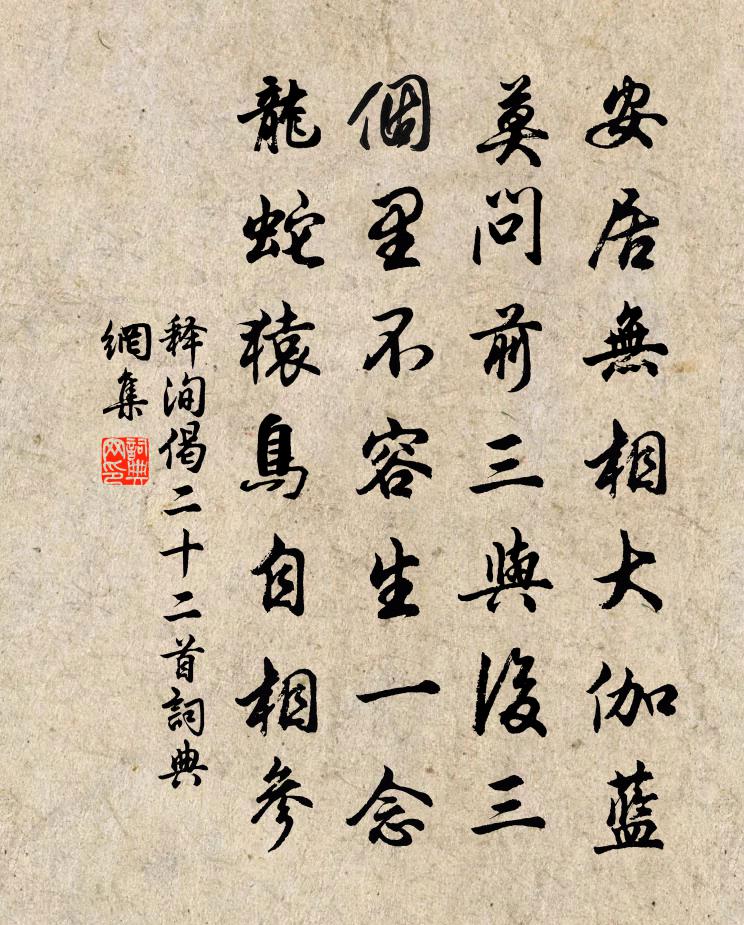 安居無相大伽藍
莫問前三與後三
個里不容生一念
龍蛇猿鳥自相參
释洵偈二十二首詞典
網集
詞典
网印